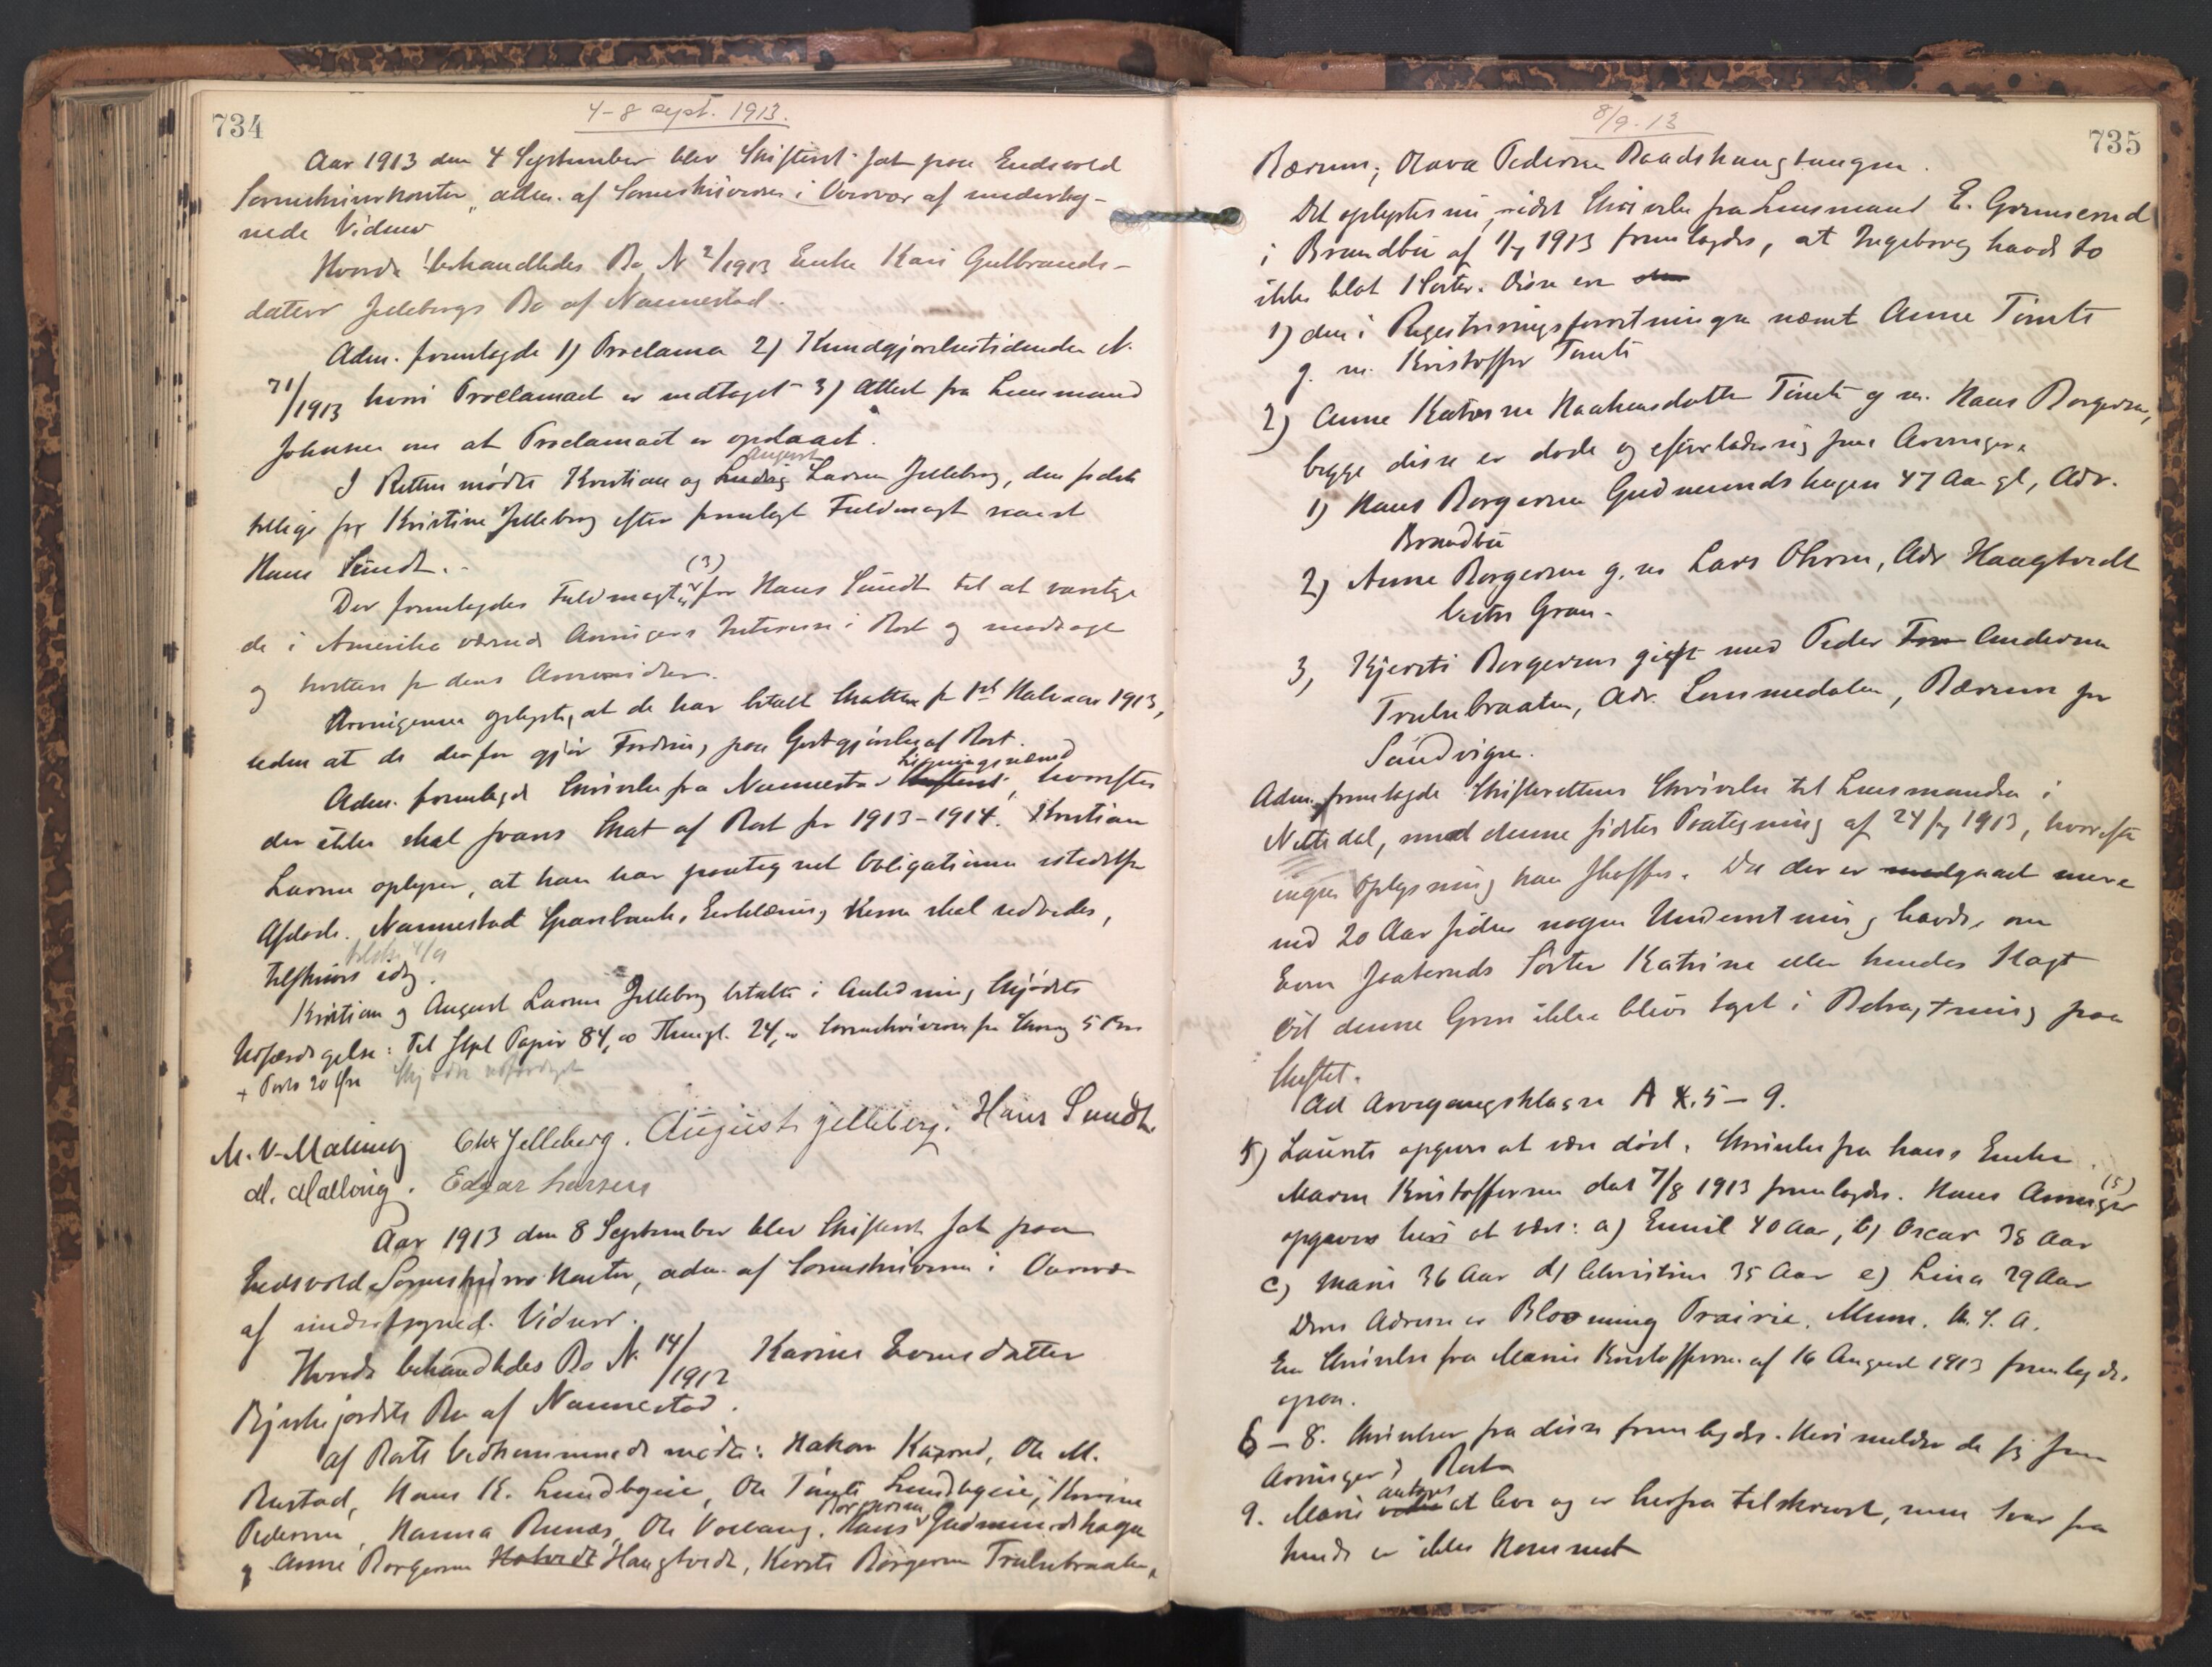 734
4-8 sept. 1913.
Aar 1913 den 4 September blev Skifteret sat paa Eidsvold
Sorenskriverkontor, adm. af Sorenskriveren i Overvær af underteg-
nede Vidner
Hvorda behandledes Bo N 2/1913 Enke Kari Gulbrands-
datter Jellebergs Bo af Nannestad.
Adm. fremlagde 1) Proclama 2) Kundgjørelsestidende N.
71/1913 hvori Proclamaet er indtaget 3) Attest fra Lensmand
Johnsen om at Proclamaet er opslaaet.
I Retten mødte Kristian og Ludvig August Larsen Jelleberg, den sidste
tillige for Kristine Jelleberg efter fremlagt Fuldmagt samt
Hans Sundt.
Der fremlagdes Fuldmagter (3) for Hans Sundt til at varetage
de i Amerika værende Arvingers Interesse i Boet og modtage
og kvittere for deres Arvemidler.
Arvingerne oplyste, at de har betalt Skatten for 1ste Halvaar 1913,
uden at de derfor gjør Fordring paa Godtgjørelse af Boet.
Adm. fremlagde Skrivelse fra Nannestad Ligningsnævnd, hvorefter
der ikke skal svares Skat af Boet for 1913-1914. Kristian
Larsen oplyser, at han har paategnet Obligationen istedetfor
Afdøde. Nannestad Sparebanks Erklæring herom skal udbedes,
tilskrives idag.
Kristian og August Larsen Jelleberg betalte i Anledning Skjødets
Udfærdigelse: Til Stpl Papir 84,00 Thingl. 24,00 Sorenskriveren for Skriv 5 Kr
+ Porto 20 Øre Skjødet udfærdiget
M. V. Malling Chr Jelleberg. August Jelleberg. Hans Sundt.
M. Malling. Edgar Larsen
Aar 1913 den 8 September blev Skifteret sat paa
Eidsvold Sorenskriverkontor, adm. af Sorenskriveren i Overvær
af undertegnede Vidner.
Hvorda behandledes Bo N. 14/1912 Karine Evensdatter
Bjerkejordets Bo af Nannestad.
Af Boets Vedkommende mødte: Hakon Kaxrud, Ole M.
Rustad, Hans K. Lundbyeie, Ole Tømte Lundbyeie, Karine
Pedersen, Hanna Runas, Ole Volbang, Hans Borgersen Gudmundshagen
og Anne Borgersen Hotvedt Haugtvedt, Kersti Borgersen Trulsebraaten,
735
8/9-13
Bærum; Olava Pedersen Raadshaugtangen.
Det oplystes nu, idet Skrivelse fra Lensmand E. Gormserud
i Brandbu af 1/7 1913 fremlagdes, at Ingeborg havde to
ikke blot 1 Søster. Disse er den
1) den i Registreringsforretningen nævnt Anne Tømte
g. m. Kristoffer Tømte
2) Anne Katrine Haakensdatter Tømte g m. Hans Borgersen,
begge disse er døde og efterlader sig som Arvinger:
1) Hans Borgersen Gudmundshagen 47 Aar gl, Adr.
Brandbu
2) Anne Borgersen g. m Lars Olsen, Adr Haugtvedt
vestre Gran.
3, Kjersti Borgersen gift med Peder Tru Andersen
Trulsebraaten, Adr. Lommedalen, Bærum pr
Sandvigen.
Adm. fremlagde Skifterettens Skrivelse til Lensmanden i
Nittedal, med dennes sidste Paategning af 24/7 1913, hvorefter
ingen Oplysning kan skaffes. Da der er medgaaet mere
end 20 Aar siden nogen Underretning havdes om
Even Jaaberuds Søster Katrine eller hendes Slægt
vil denne Gren ikke blive taget i Betragtning paa
Skiftet.
Ad Arvegangsklasse A 4.5-9.
5) Laurits opgives at være død. Skrivelse fra hans Enke
Maren Kristoffersen dat 7/8 1913 fremlagdes. Hans Arvinger (5)
opgaves heri at være: a) Emil 40 Aar, b) Oscar 38 Aar
c) Marie 36 Aar d) Christine 35 Aar e) Lina 29 Aar
Deres Adresse er Blooming Prairie. Minn. U. S. A.
En Skrivelse fra Maren Kristoffersen af 16 August 1913 fremlagdes
ogsaa.
6-8. Skrivelser fra disse fremlagdes. Heri melder de sig som
Arvinger i Boet.
9. Marie antages at leve og er herfra tilskrevet, men Svar fra
hende er ikke kommet